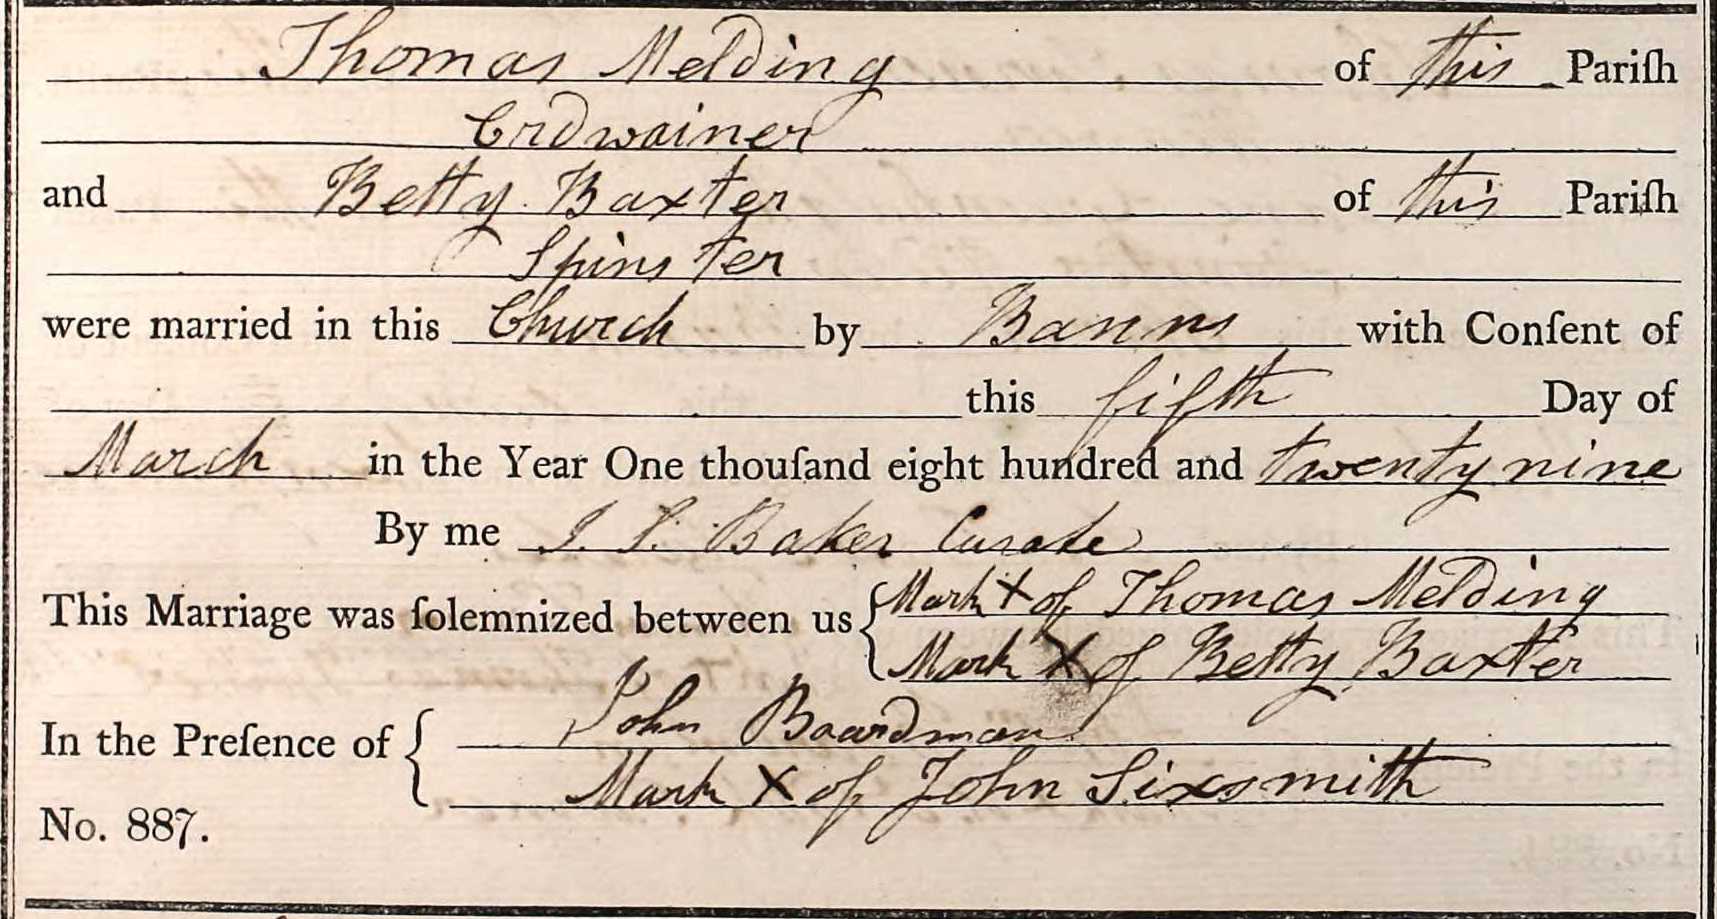 Thomas Melding of this Pariſh
Crdwainer
and Betty Baxter of this Pariſh
Spinster
were married in this Church by Banns with Conſent of
this fifth Day of
March in the Year One thouſand eight hundred and twenty nine
By me J. S. Baker Curate
This Marriage was ſolemnized between us { Mark X of Thomas Melding
Mark X of Betty Baxter
In the Preſence of { John Boardman
Mark X of John Sixsmith
No. 887.